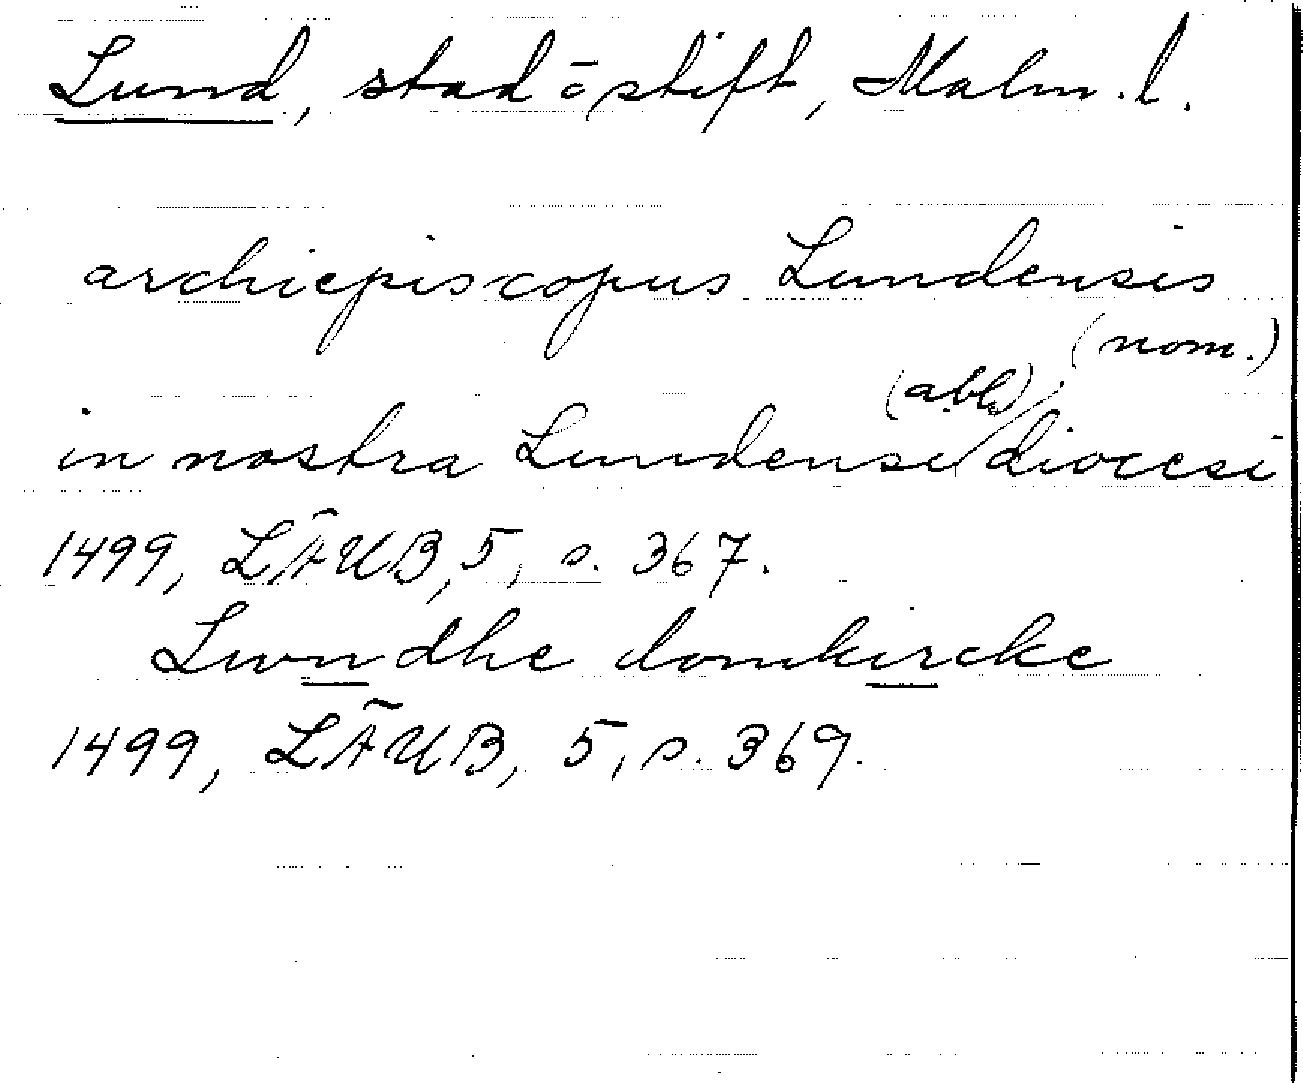 Lund, stad o stift, Malm. l.
archiepiscopus Lundensis
(nom.)
(abl.)
in nostra Lundensi diocesi
1499, LÄUB, 5, s. 367.
Lwndhe domkircke
1499, LÄUB, 5, s. 369.